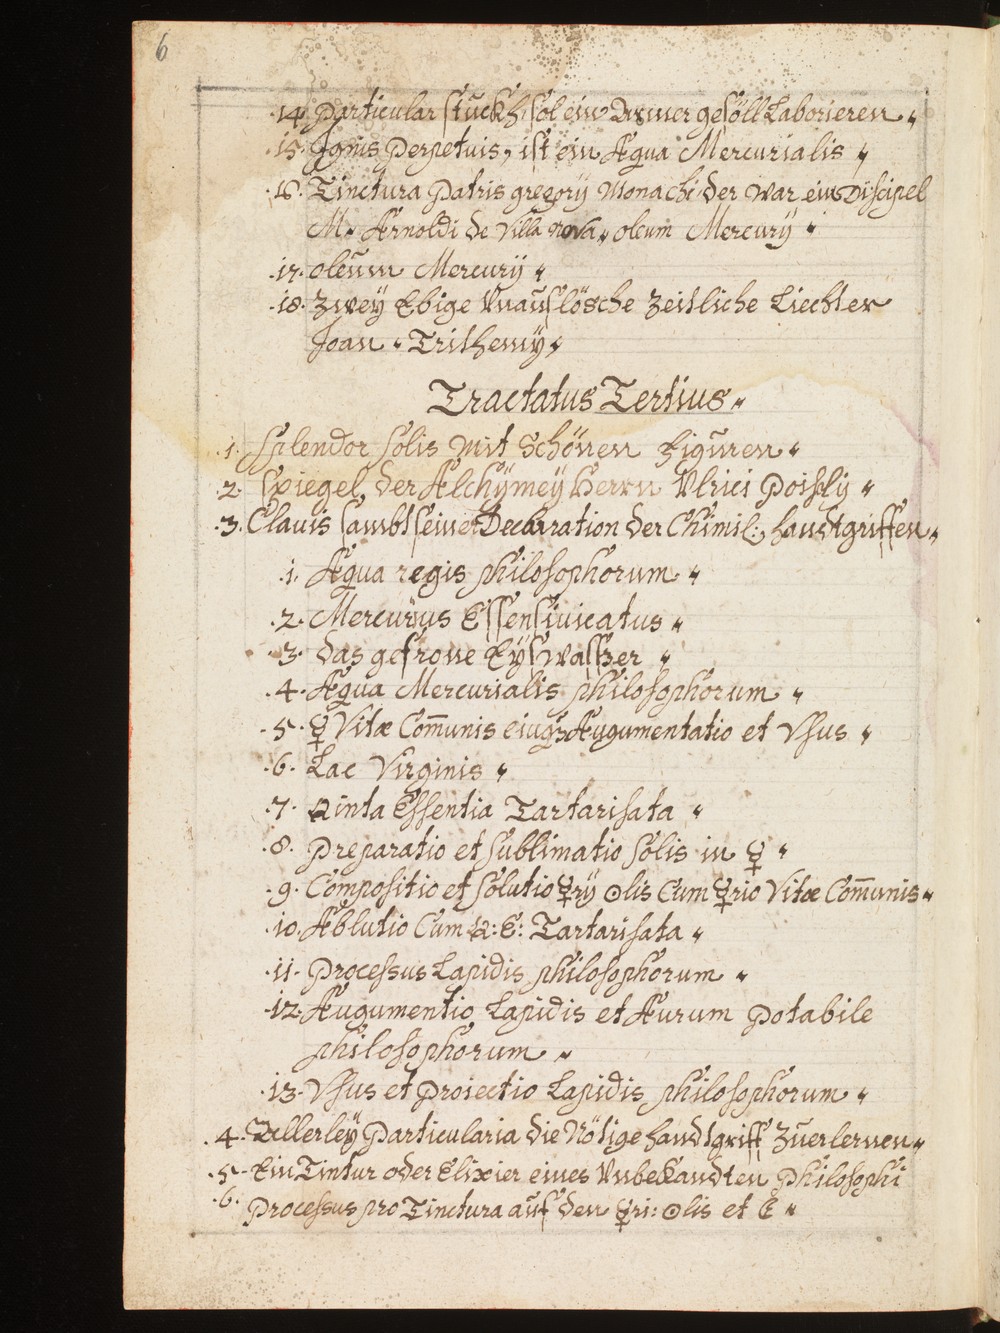 6
.14. Particular stuckh sol ein Armer gesöll Laborieren „
.15. Ignis Perpetuis, ist ein Aqua Mercurialis „
.16. Tinctura Patris gregorÿ Monachi der war ein Discipel
M. Arnoldi de Villa nova „ oleum Mercurÿ „
.17. oleum Mercurÿ „
.18. Zweÿ Ebige Vnauslösche Zeitliche Liechter
Joan „ Trithemÿ „
Tractatus Tertius „
.1. Splendor solis Mit Schönen Figuren „
.2. Spiegel der Alchÿmeÿ Herrn Vlrici
.3. Clavis sambt seiner Declaration der Chimil: handtgriffen „
.1. Aqua regis philosophorum „
.2. Mercurÿus Essensivicatus „
.3. das gefrone Eÿswasser „
.4. Aqua Mercurialis philosophorum „
.5. ☿ Vitæ Com̄unis eiusqs Augumentatio et Vsus „
.6. Lac Virginis „
.7. Qinta Essentia Tartarisata „
.8. Preparatio et sublimatio solis in ☿ „
.9. Compositio et solutio ☿rÿ ☉lis Cum ☿rio Vitæ Com̄unis „
.10. Ablutio Cum Q: E: Tartarisata „
.11. Processus Lapidis philosophorum „
.12. Augumentio Lapidis et Aurum Potabile
philosophorum „
.13. Vsus et Proiectio Lapidis philosophorum „
.4. Allerleÿ Particularia die Nötige handtgriff Zuerlernen „
.5. Ein Tintur oder Elixier eines Vnbekandten Philosophi
.6. Processus pro Tinctura auf den ☿ri: ☉lis et